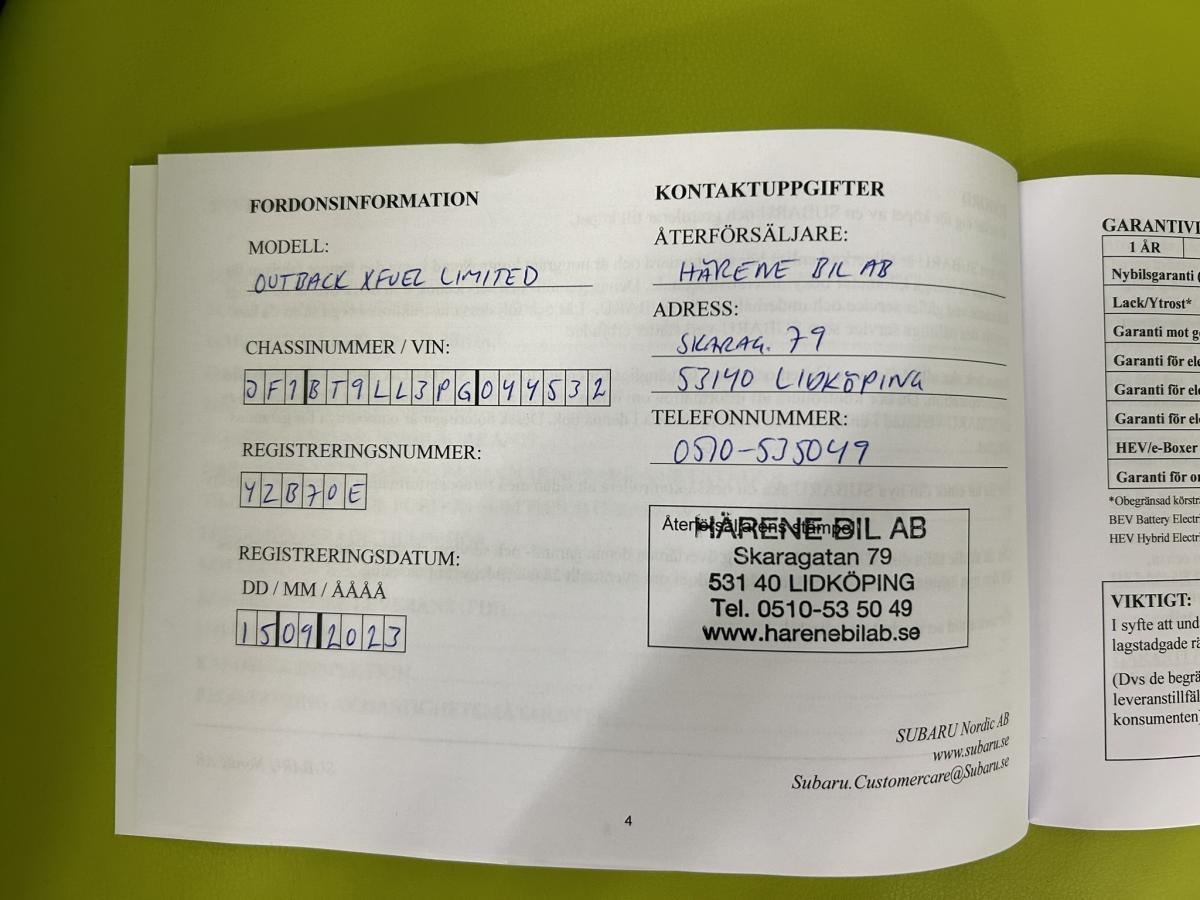 FORDONSINFORMATION
MODELL:
OUTBACK XFUEL LIMITED
CHASSINUMMER / VIN:
JF1BT9LL3PG044532
REGISTRERINGSNUMMER:
YZB70E
REGISTRERINGSDATUM:
DD / MM / ÅÅÅÅ
15092023
KONTAKTUPPGIFTER
ÅTERFÖRSÄLJARE:
HÄRENE BIL AB
ADRESS:
SKARAG. 79
53140 LIDKÖPING
TELEFONNUMMER:
0510-535049
Återförsäljarens stämpel
HÄRENE BIL AB
Skaragatan 79
531 40 LIDKÖPING
Tel. 0510-53 50 49
www.harenebilab.se
SUBARU Nordic AB
www.subaru.se
Subaru.Customercare@Subaru.se
4
GARANTIVI
1 ÅR
Nybilsgaranti (
Lack/Ytrost*
Garanti mot g
Garanti för ele
Garanti för ele
Garanti för ele
HEV/e-Boxer
Garanti för or
*Obegränsad körstra
BEV Battery Electri
HEV Hybrid Electri
VIKTIGT:
I syfte att und
lagstadgade rä
(Dvs de begrä
leveranstillfäl
konsumenten)